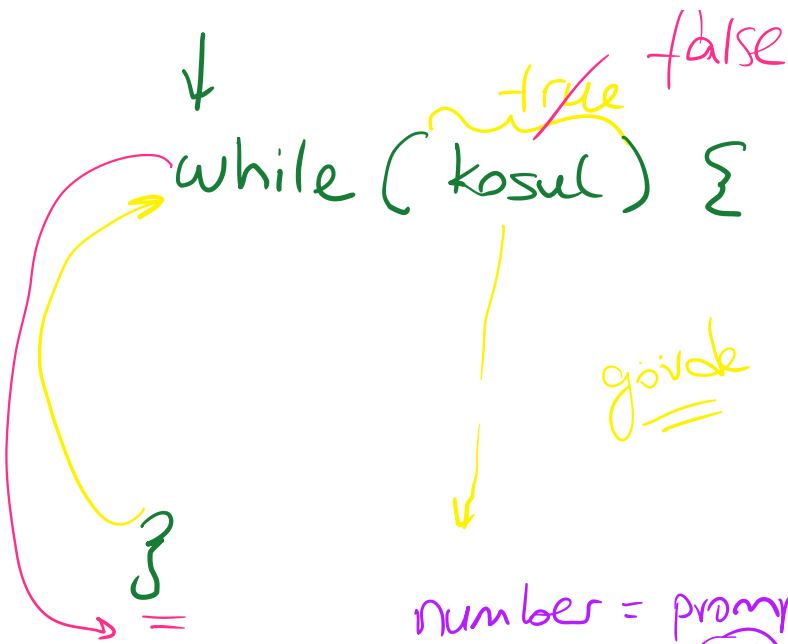 false
true
while (kosul) {
gövde
}
number = promp